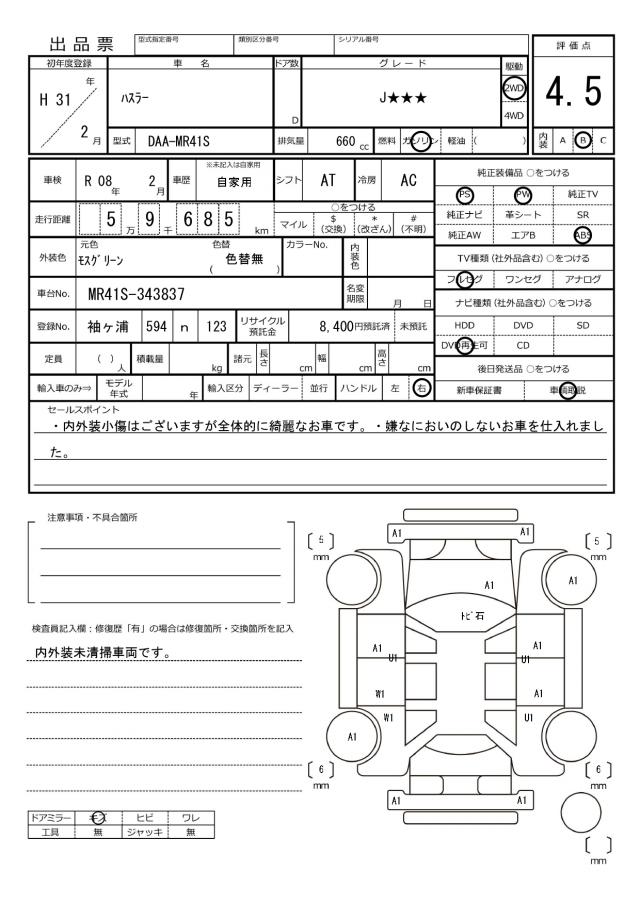 出品票 型式指定番号 類別区分番号 シリアル番号 評価点
初年度登録 車名 ドア数 グレード 駆動
H 31 年 2 月 ﾊｽﾗｰ D J★★★ 2WD 4WD 4.5
型式 DAA-MR41S 排気量 660 cc 燃料 ガソリン 軽油 ( ) 内装 A B C
車検 R 08 年 2 月 車歴 ※未記入は自家用 自家用 シフト AT 冷房 AC
走行距離 5 万 9 千 6 8 5 km ○をつける
マイル $ (交換) * (改ざん) # (不明)
外装色 元色 ﾓｽｸﾞﾘｰﾝ 色替 ( 色替無 ) カラーNo. 内装色
車台No. MR41S-343837 名変期限 月 日
登録No. 袖ヶ浦 594 n 123 リサイクル預託金 8,400円預託済 未預託
定員 ( ) 人 積載量 kg 諸元 長さ cm 幅 cm 高さ cm
輸入車のみ⇒ モデル年式 年 輸入区分 ディーラー 並行 ハンドル 左 右
純正装備品 ○をつける
PS PW 純正TV
純正ナビ 革シート SR
純正AW エアB ABS
TV種類 (社外品含む) ○をつける
フルセグ ワンセグ アナログ
ナビ種類 (社外品含む) ○をつける
HDD DVD SD
DVD再生可 CD
後日発送品 ○をつける
新車保証書 車輌取説
セールスポイント
・内外装小傷はございますが全体的に綺麗なお車です。・嫌なにおいのしないお車を仕入れまし
た。
注意事項・不具合箇所
検査員記入欄：修復歴「有」の場合は修復箇所・交換箇所を記入
内外装未清掃車両です。
ドアミラー キズ ヒビ ワレ
工具 無 ジャッキ 無
A1 A1
5 mm 5 mm
A1 A1
ﾄﾋﾞ石
A1 U1 A1 U1
W1 A1
W1 U1
A1
6 mm 6 mm
A1 A1
mm